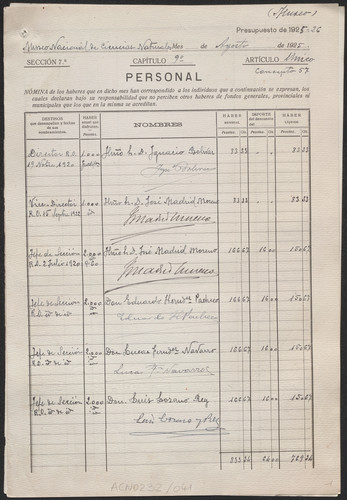 (Museo)
Presupuesto de 1925-26
Museo Nacional de Ciencias Naturales Mes de Agosto de 1925.
SECCIÓN 7.ª CAPÍTULO 9º ARTÍCULO Único
Concepto 57.
PERSONAL
NÓMINA de los haberes que en dicho mes han correspondido a los individuos que a continuación se expresan, los
cuales declaran bajo su responsabilidad que no perciben otros haberes de fondos generales, provinciales ni
municipales que los que en la misma se acreditan.
DESTINOS NOMBRES
HABER
IMPORTE
HABER
Director R.O. 1.000 Iltmo S. D. Ignacio Bolívar 83 33 " " 83 33
1920
Vice-Director 1.000 Iltmo S. D. José Madrid Moreno 83 33 " " 83 33
R.O. 15 Septbre 1922
JMadrid Moreno
Jefe de Sección 2.000 Iltmo S. D. José Madrid Moreno 166 67 16 00 150 67
R.O. 2 1920
JMadrid Moreno
Jefe de Sección 2.000 Don Eduardo Hernz Pacheco 166 67 16 00 150 67
R.O. id id id
Eduardo H-Pacheco
Jefe de Sección 2.000 Don Lucas Fernz Navarro 166 67 16 00 150 67
R.O. id id id
Lucas Fz Navarro
Jefe de Sección 2.000 Don Luis Lozano Rey 166 67 16 00 150 67
R.O. id id id
Luis Lozano y Rey
833 34 64 00 769 34
ACN0252/041